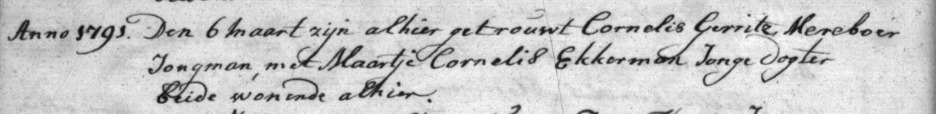 Anno 1791. Den 6 Maart zijn alhier getrouwt Cornelis Gerritz. Mereboer
Jongman, met Maartje Cornelis Ekkerman Jonge Dogter
beide wonende alhier.